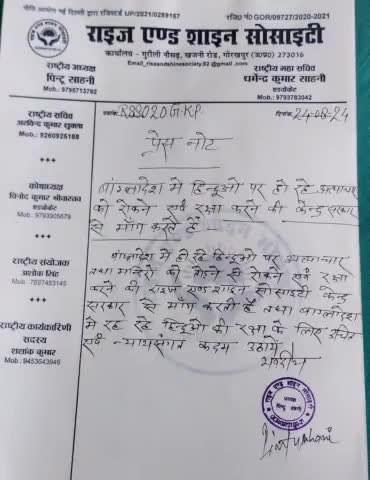 नीति आयोग नई दिल्ली द्वारा रजिस्टर्ड UP/2021/0289167
रजि0 नं0 GOR/09727/2020-2021
राइज एण्ड शाइन सोसाइटी
कार्यालय - गुरौली नौसढ़, खजनी रोड, गोरखपुर (उ0प्र0) 273016
Email_riseandshinesociety.92@gmail.com
राष्ट्रीय अध्यक्ष
पिन्टू साहनी
Mob.: 9795713792
राष्ट्रीय महा सचिव
धर्मेन्द्र कुमार साहनी
एडवोकेट
Mob.: 9793783042
राष्ट्रीय सचिव
अरविन्द कुमार शुक्ला
Mob.: 9260925188
RSS020GKP
दिनांक 24-08-24
प्रेस नोट
कोषाध्यक्ष
विनोद कुमार श्रीवास्तव
एडवोकेट
Mob.: 9793905679
बांग्लादेश में हिन्दुओं पर हो रहे अत्याचार
को रोकने एवं रक्षा करने की केन्द्र सरकार
से माँग करते हैं
राष्ट्रीय संयोजक
अशोक सिंह
Mob.: 7897483145
बांग्लादेश में हो रहे हिन्दुओं पर अत्याचार
तथा मन्दिरों को तोड़ने से रोकने एवं रक्षा
करने की राइज एण्ड शाइन सोसाइटी केन्द्र
सरकार से माँग करती है तथा बांग्लादेश
में रह रहे हिन्दुओं की रक्षा के लिए उचित
एवं न्यायसंगत कदम उठाये
भवदीय
राष्ट्रीय कार्यकारिणी
सदस्य
शशांक कुमार
Mob.: 9453543945
राइज एण्ड शाइन सोसाइटी
अध्यक्ष